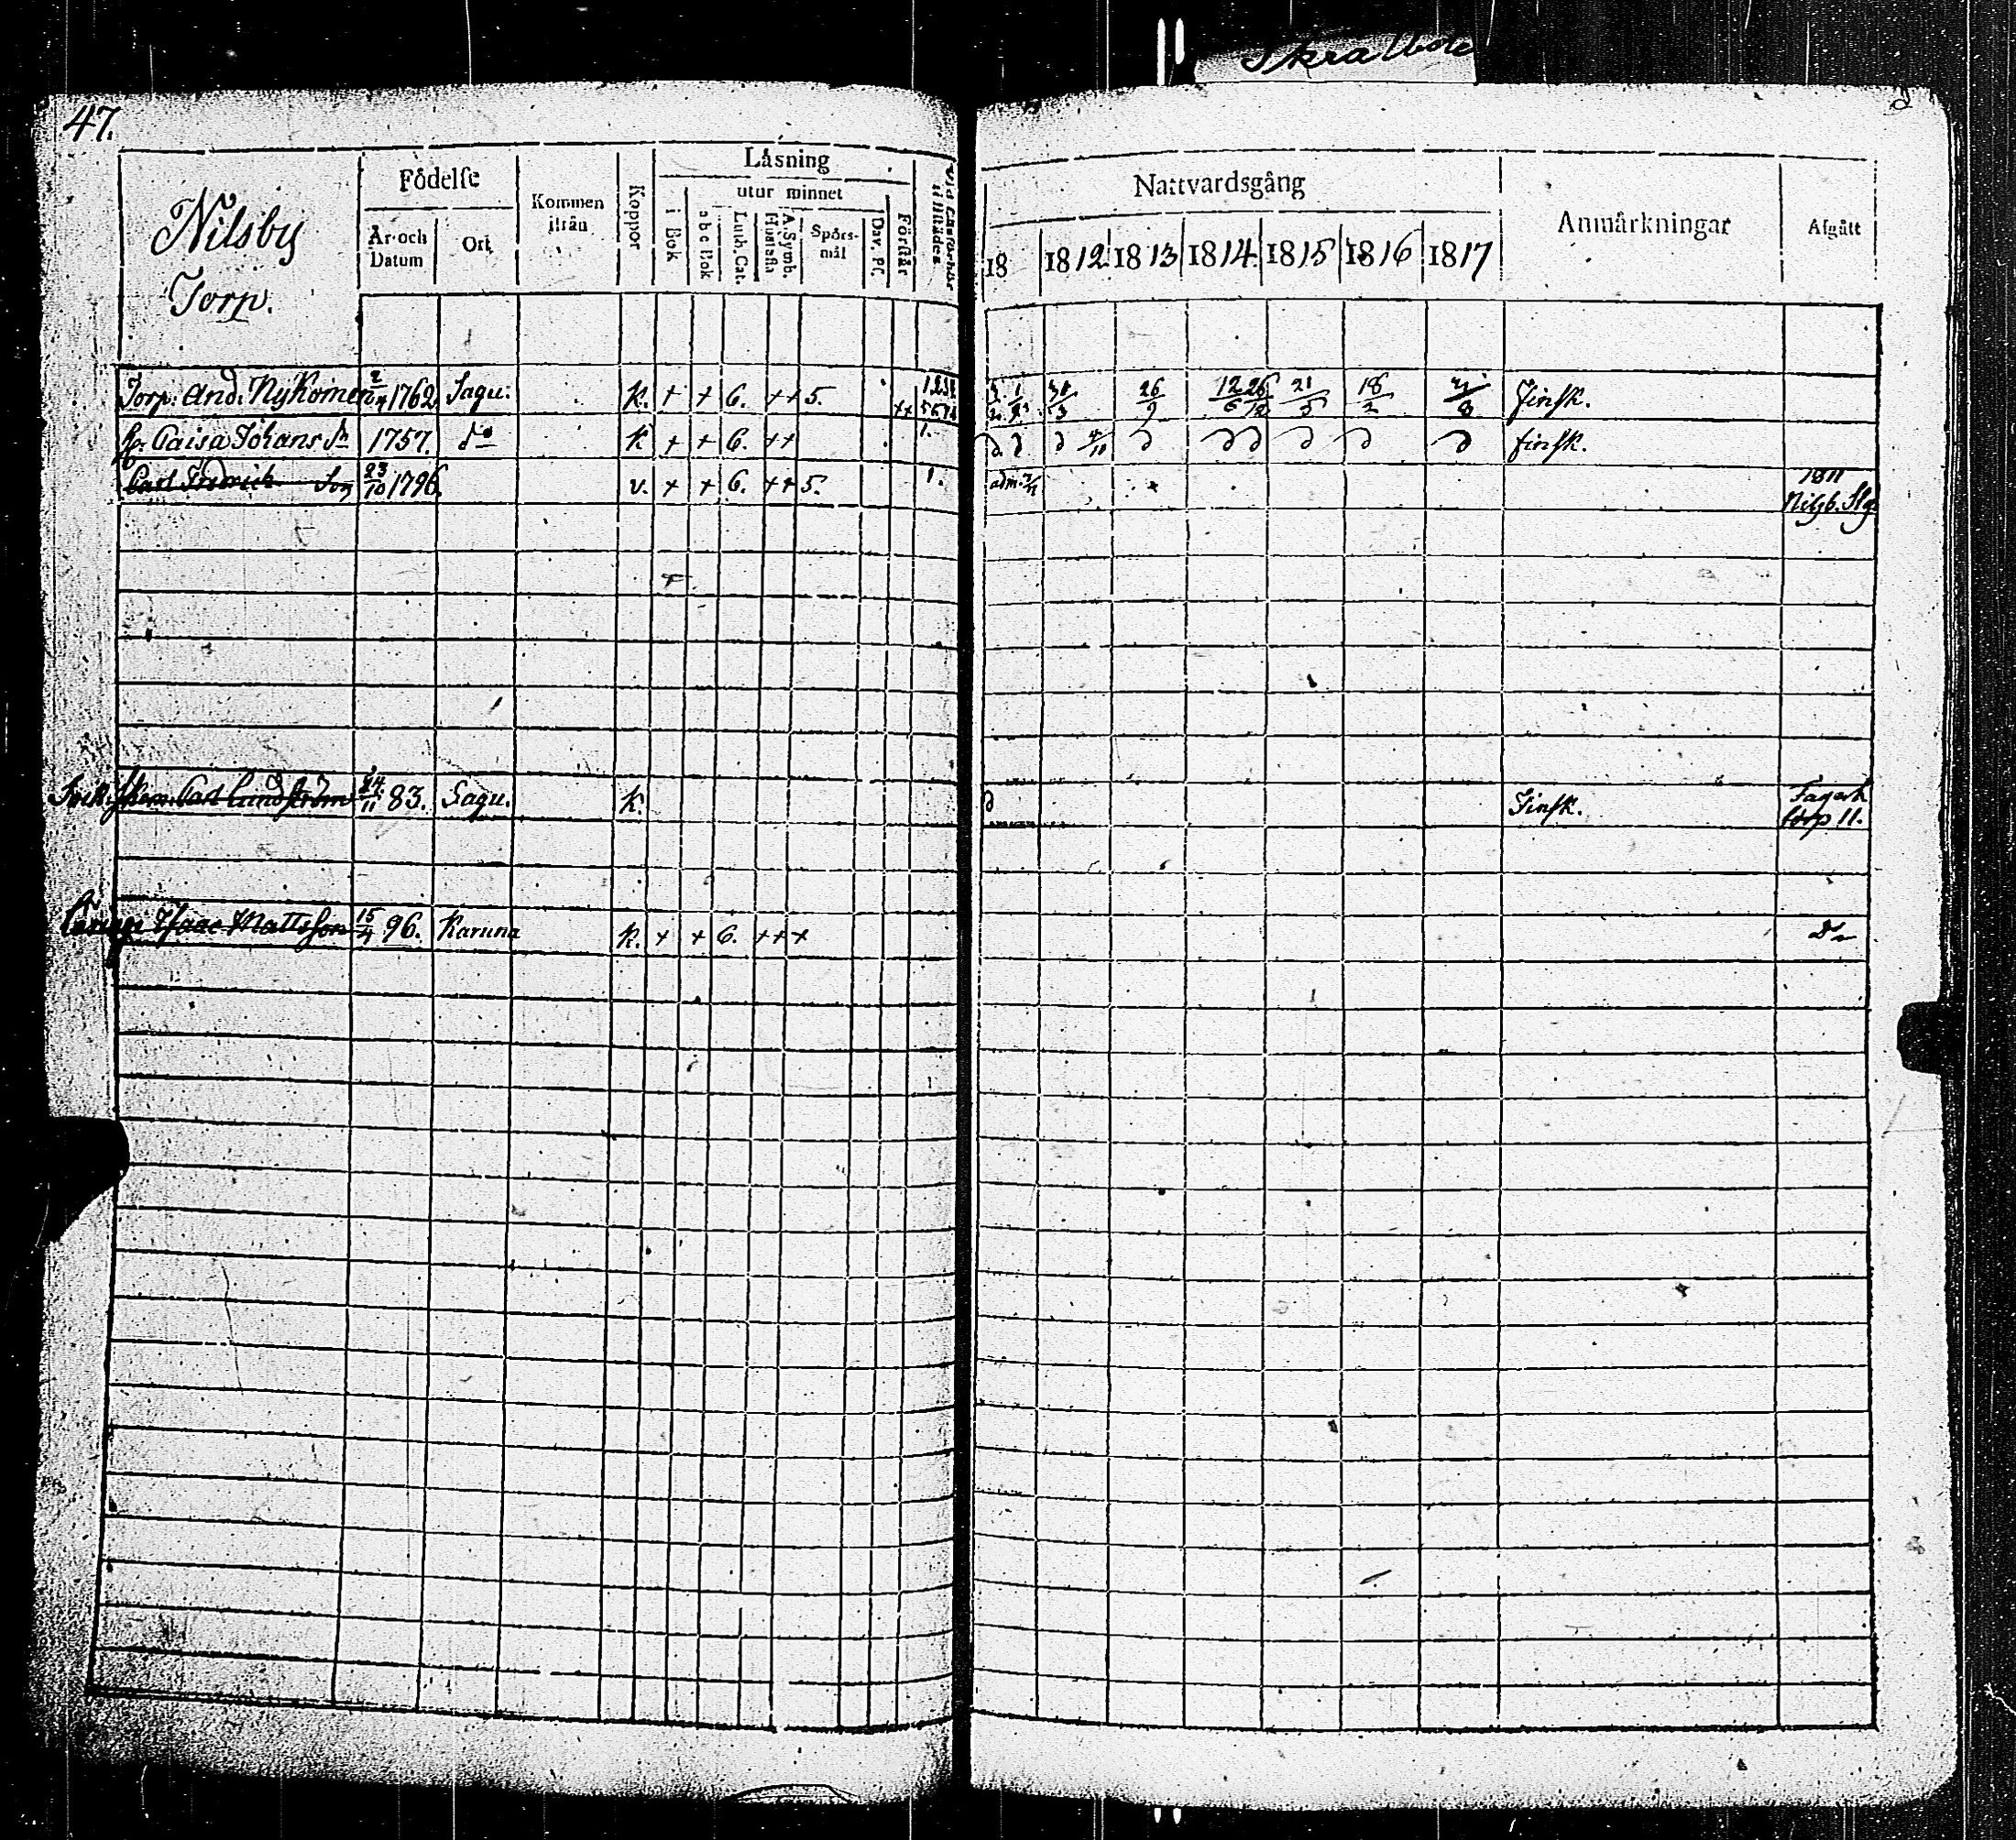 Skrallbole
47.
Nilsby
Torp.
Födelse
År och Datum
Ort
Kommen ifrån
Koppor
Läsning
utur minnet
i Bok
abc Bok
Luth. Cat.
A. Symb. Hustafla
Spörsmål
Dav. Ps.
Förstår
Nattvardsgång
18 1812 1813 1814 1815 1816 1817
Anmärkningar
Afgått
Torp: And: Nykomen 2/4 1762 Sagu: K. + + 6. ++ 5. ++ 26/9 12/6 26/12 21/5 18/2 Finsk.
h: Caisa Johans dr 1757. do K + + 6. ++ 1. finsk.
Carl Fredrich Son 23/10 1796. v. + + 6. ++ 5. 1. adm. 1811
Nilsb. Slg
Sock. Skom. Carl Lundström 24/11 83. Sagu. K. Finsk. Fagerk
torp 11.
Isaac Mattsson 15/4 96. Karuna K. + + 6. +++ do